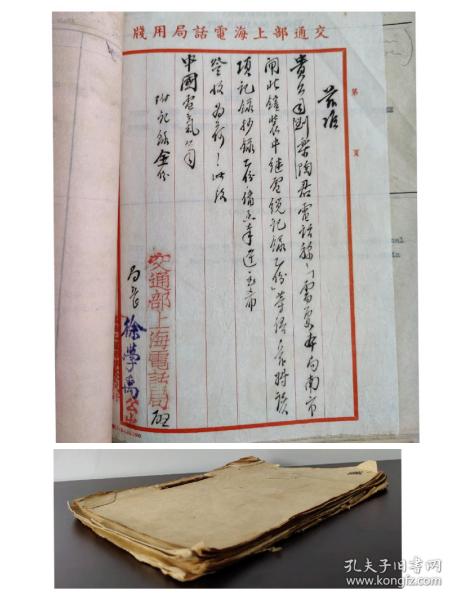 交通部上海電話局用牋
第 頁
茲准
貴公司劉樂陶君電話稱「需要本局南市
閘北鎗裝中继電纜記錄乙份」等語兹將該
項記錄抄錄乙份備函奉送至希
詧收為荷!此致
中國電氣公司
附記錄全份
交通部上海電話局啟
局長 徐學禹
孔夫子旧书网
www.kongfz.com